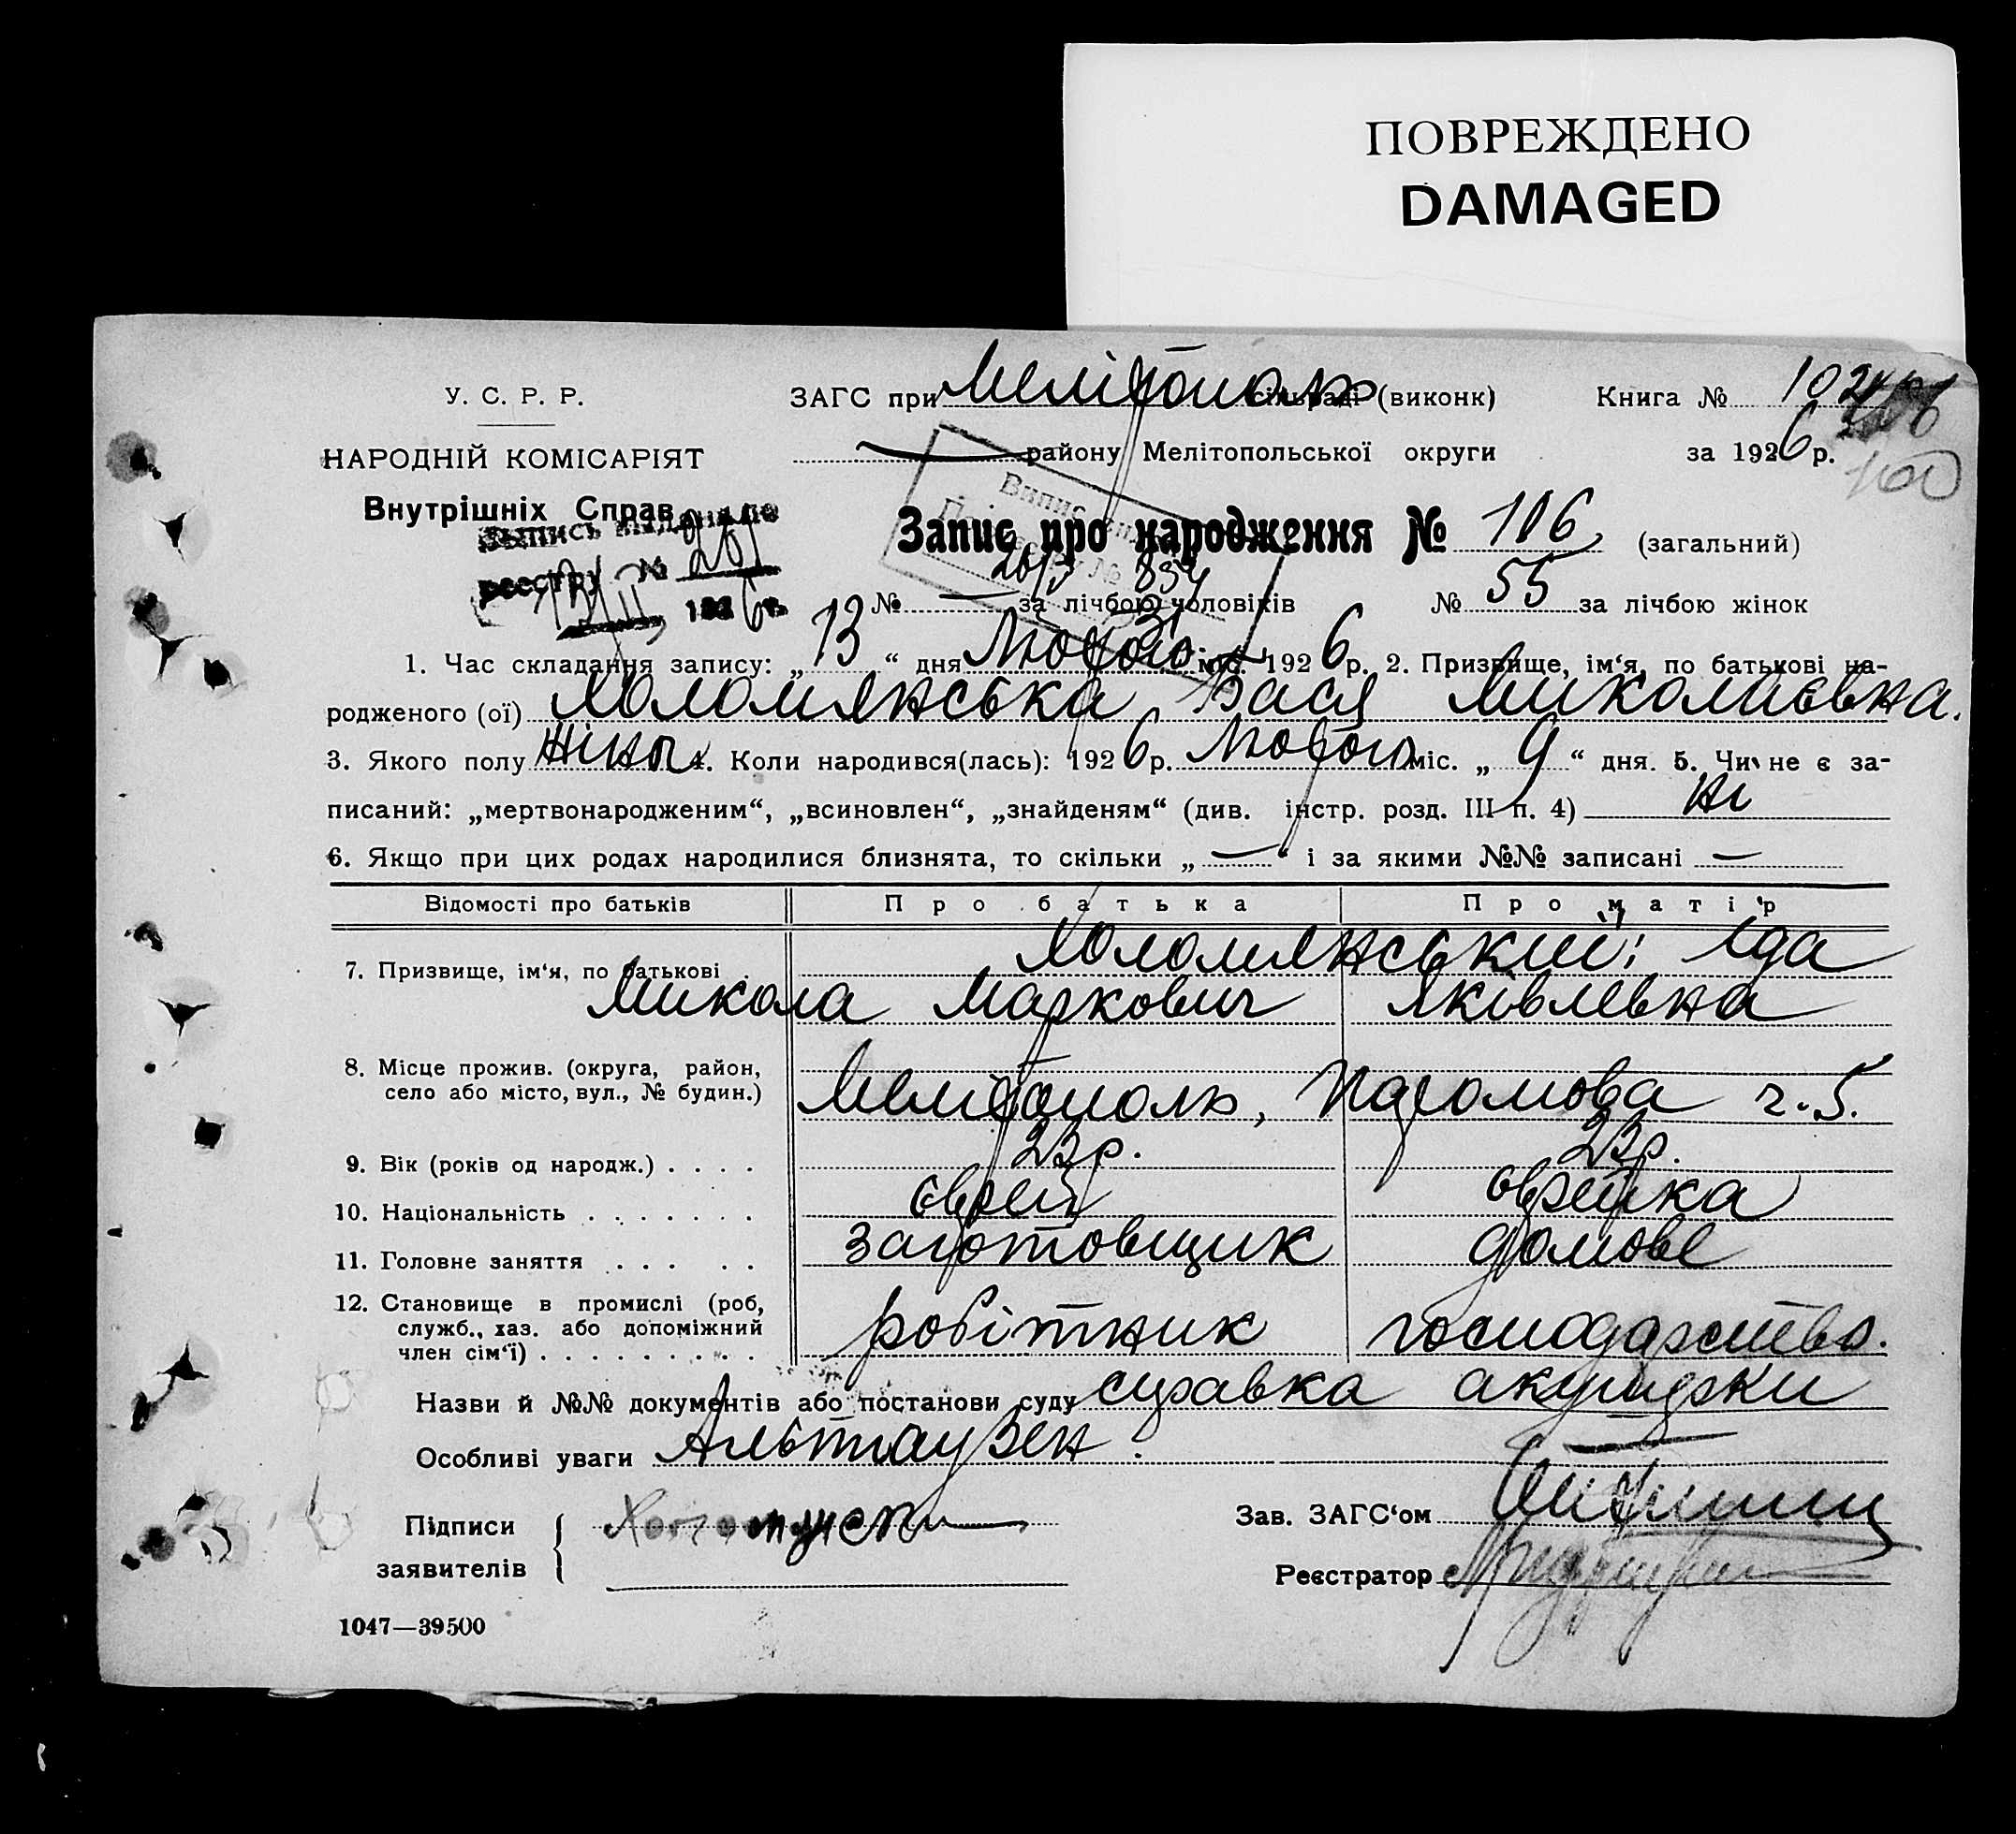 ПОВРЕЖДЕНО
DAMAGED
У. С. Р. Р.
ЗАГС при Мелітополь сільраді (виконк)
Книга № 102
НАРОДНІЙ КОМІСАРІЯТ
району Мелітопольської округи
за 1926 р.
100
Внутрішніх Справ
Выпись выдана по
реестру № 261
1926 г.
Випис
Запис про народження № 106 (загальний)
№ — за лічбою чоловіків
№ 55 за лічбою жінок
1. Час складання запису: „13“ дня Лютого міс. 1926 р. 2. Призвище, ім‘я, по батькові на-
родженого (ої) Холомлянська Бася Миколаєвна.
3. Якого полу жіноч. 4. Коли народився(лась): 1926 р. Лютого міс. „9“ дня. 5. Чи не є за-
писаний: „мертвонародженим“, „всиновлен“, „знайденям“ (див. інстр. розд. III п. 4) ні
6. Якщо при цих родах народилися близнята, то скільки „—“ і за якими №№ записані —
Відомості про батьків
Про батька
Про матір
7. Призвище, ім‘я, по батькові
Холомлянський: Іда
Микола Маркович Яківлевна
8. Місце прожив. (округа, район,
село або місто, вул., № будин.)
Мелітополь, ч. 5.
9. Вік (років од народж.) . . . . 23 р. 23 р.
10. Національність . . . . . . . єврей єврейка
11. Головне заняття . . . . . заготовщик домове
12. Становище в промислі (роб,
служб., хаз. або допоміжний
член сім‘ї) . . . . . . . . . робітник господарство.
Назви й №№ документів або постанови суду справка акушерки
Особливі уваги Альтгаузен.
Підписи
заявителів
Зав. ЗАГС‘ом
Реєстратор
1047—39500